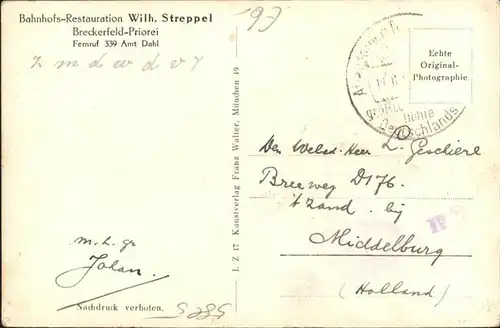 Bahnhofs-Restauration Wilh. Streppel
Breckerfeld-Priorei
Fernruf 339 Amt Dahl
z m d w d v 7
193
Echte
Original-
Photographie
größte Höhle
Deutschlands
Den Weled. Heer L. Geschiere
Breeweg D176.
't Zand. bij
Middelburg
(Holland)
m. h. gr
Johan.
Nachdruck verboten.
S 285
I. Z 17 Kunstverlag Franz Walter, München 19